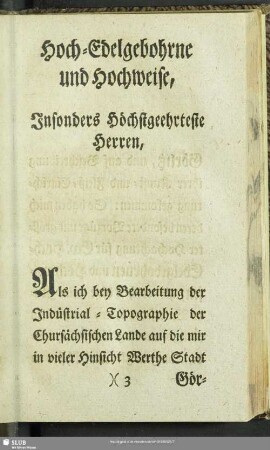 Hoch-Edelgebohrne
und Hochweise,
Insonders Höchstgeehrteste
Herren,
Als ich bey Bearbeitung der
Indüstrial-Topographie der
Chursächsischen Lande auf die mir
in vieler Hinsicht Werthe Stadt
)( 3
Gör-
SLUB
Wir führen Wissen.